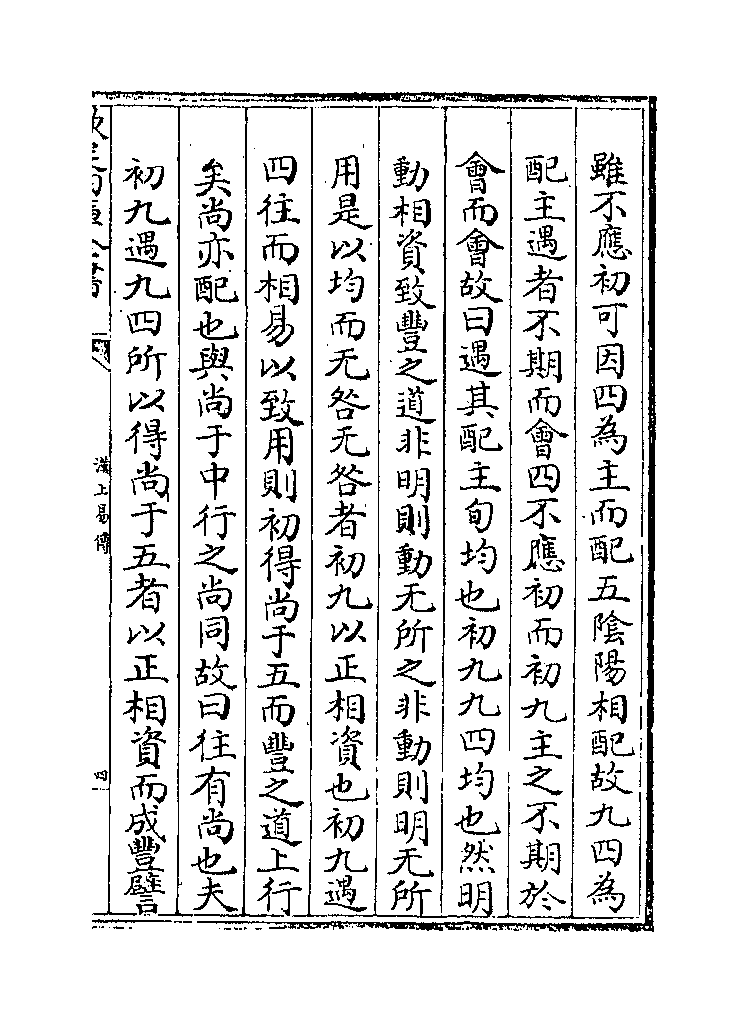 雖不應初可因四為主而配五陰陽相配故九四為
配主遇者不期而會四不應初而初九主之不期於
會而會故曰遇其配主旬均也初九九四均也然明
動相資致豐之道非明則動无所之非動則明无所
用是以均而无咎无咎者初九以正相資也初九遇
四往而相易以致用則初得尚于五而豐之道上行
矣尚亦配也與尚于中行之尚同故曰往有尚也夫
初九遇九四所以得尚于五者以正相資而成豐譬
漢上易傳
四